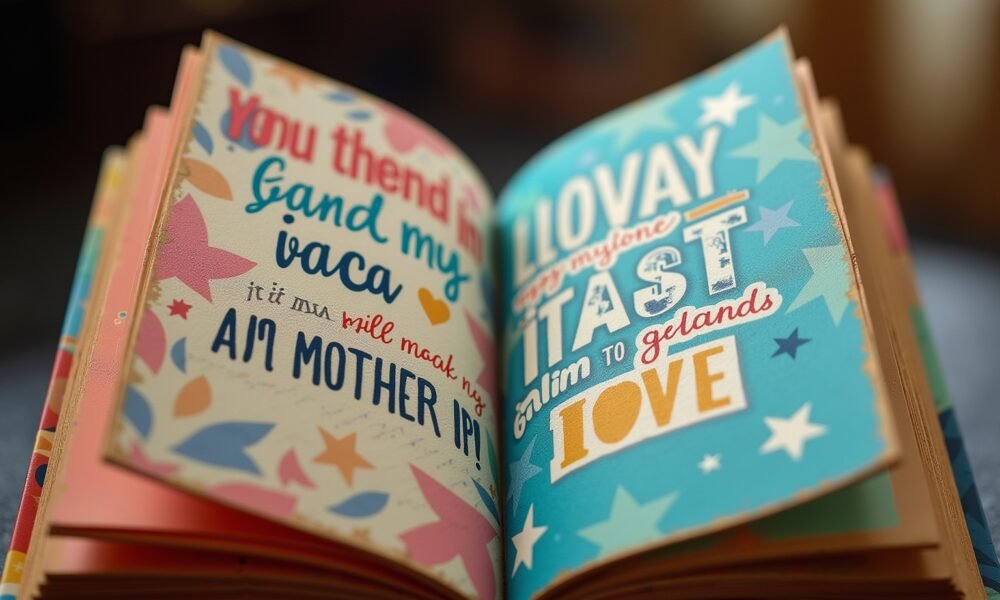 You thend in
Gand my
vaca
it it mu will mack ny
AM MOTHER IP!
LLOVAY
myłone
ITAST
Galim TO gelands
IOVE